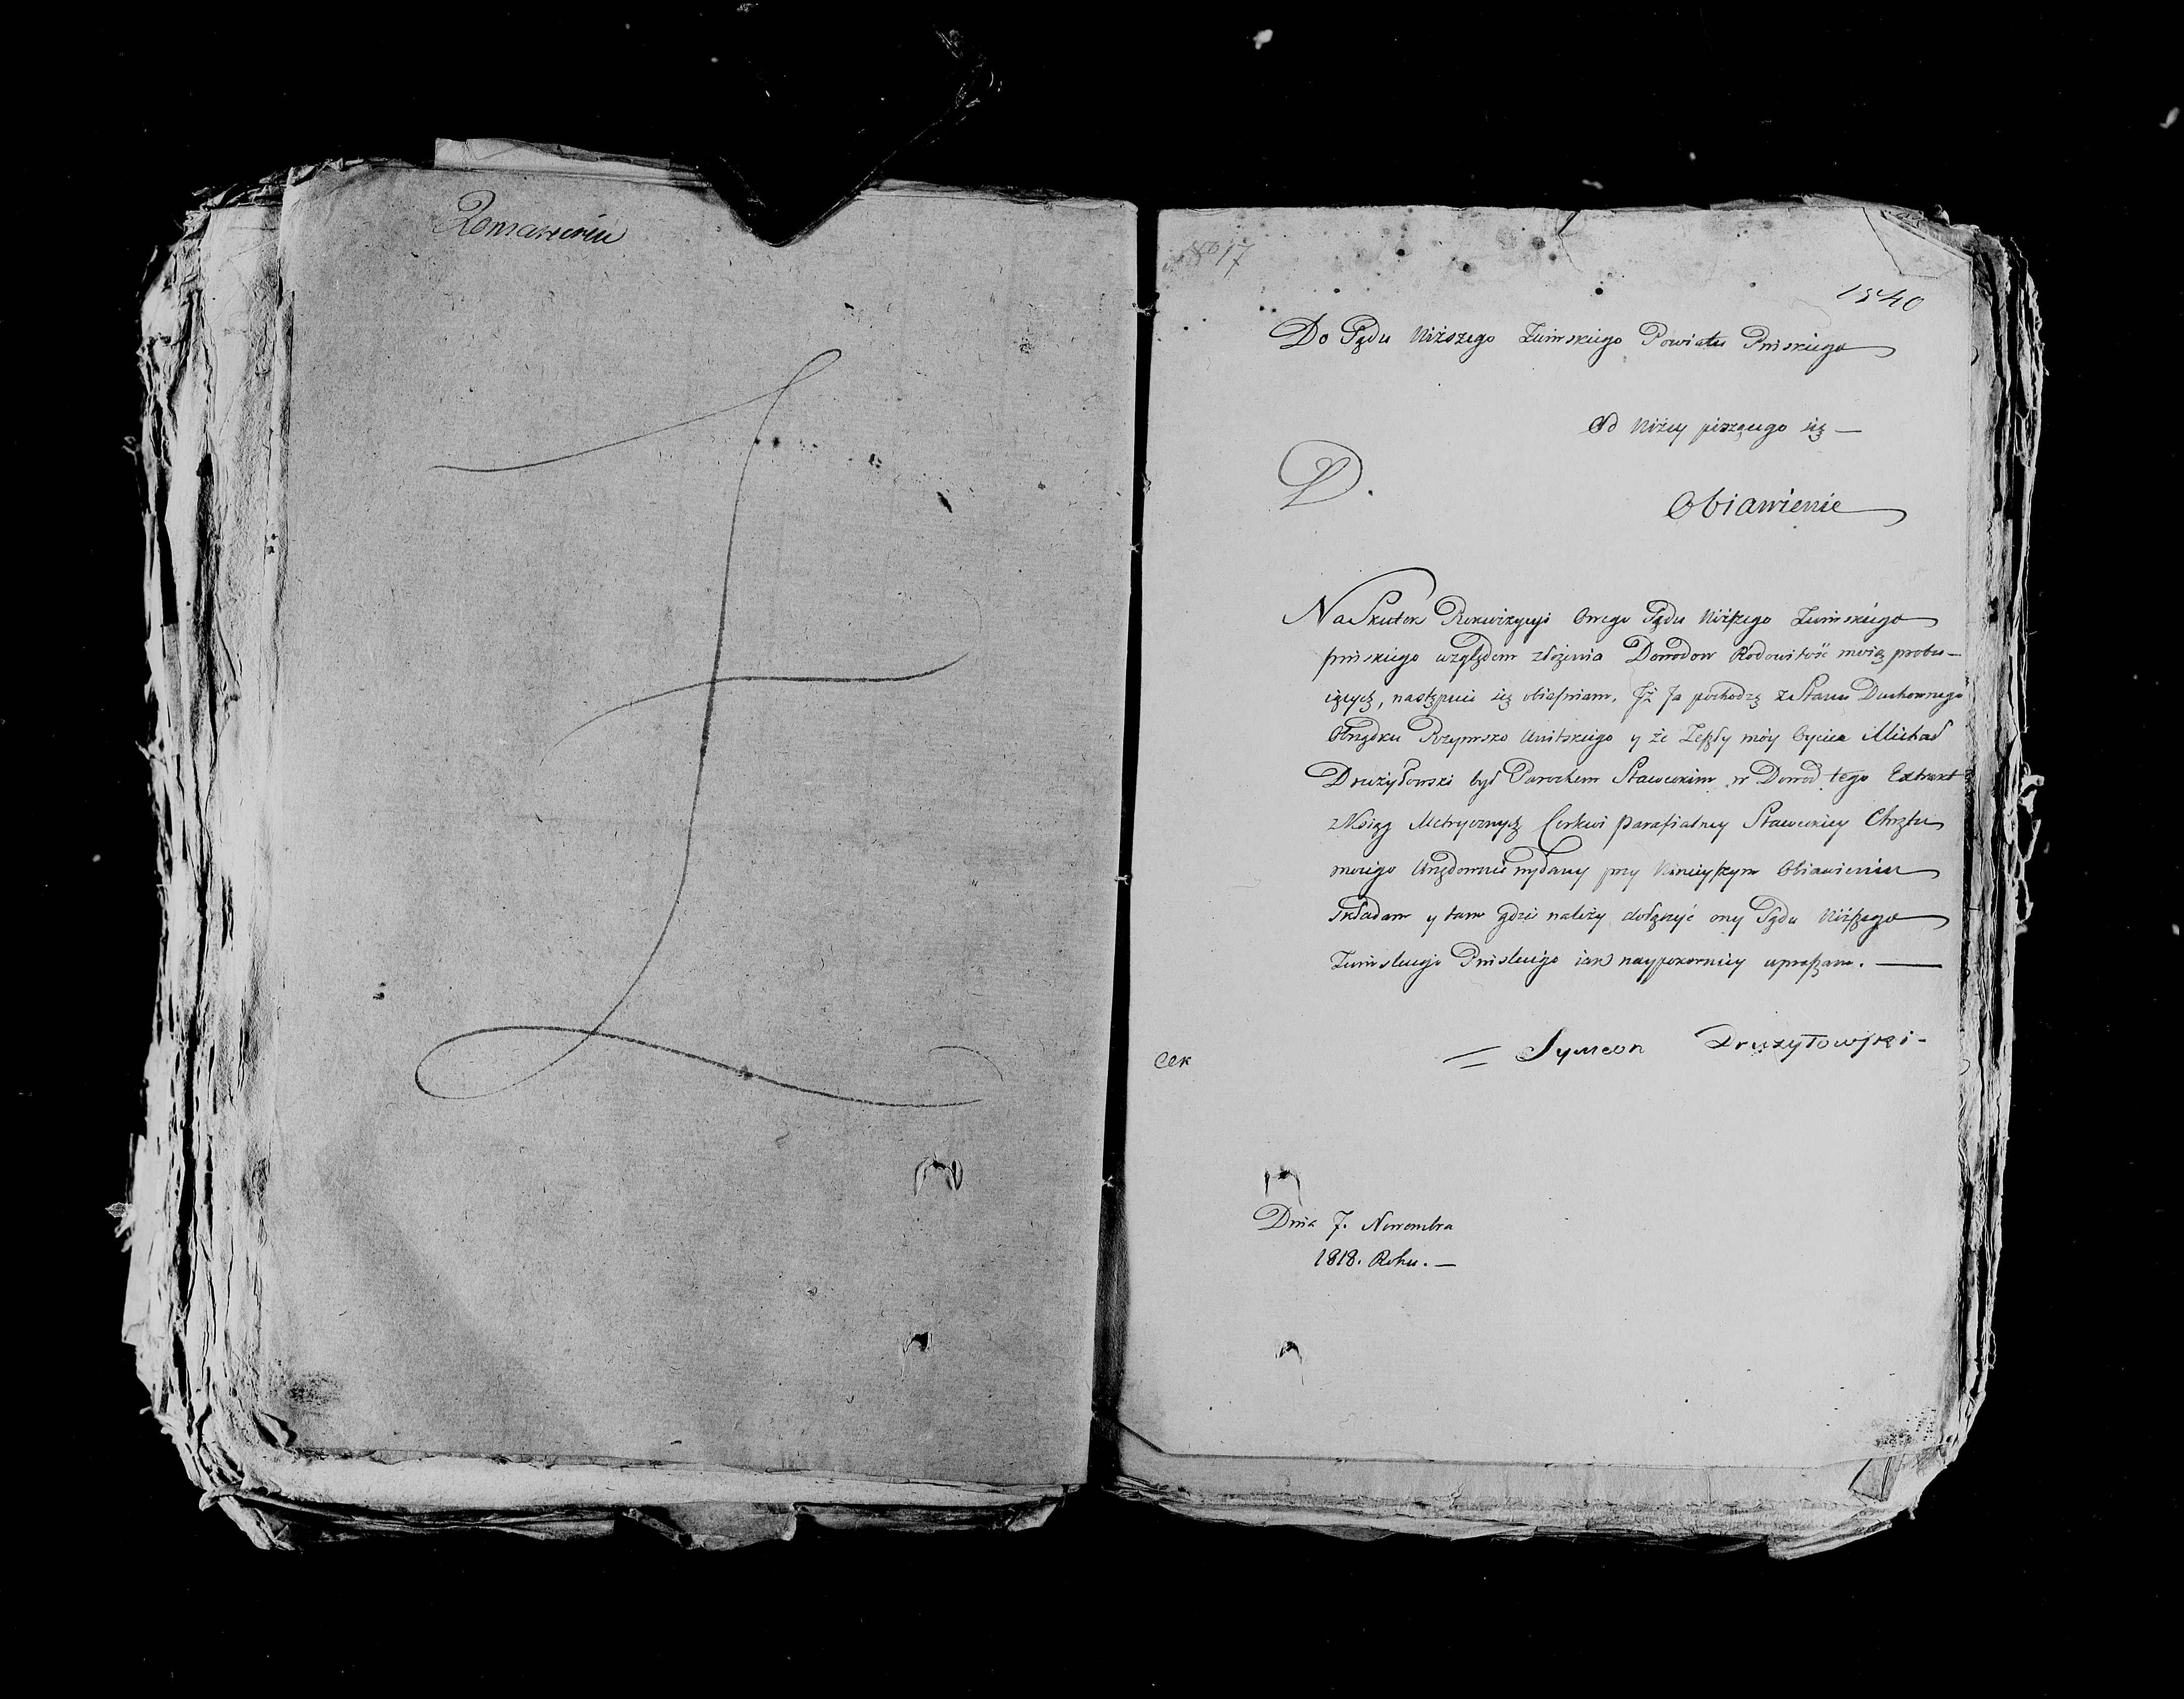 No 17
1540
Do Sądu Niższego Ziemskiego Powiatu Pińskiego
Od Niżey piszącego się —
D.
Obiawienie
Na Skutek Rekwizycyi Onego Sądu Niższego Ziemskiego
pińskiego względem złożenia Dowodow Rodowitość moię probu-
iących, następnie się obiaśniam, Iż Ja pochodzę ze Stanu Duchownego
Obrządku Rzymsko Unitskiego y że Zeszły móy Oyciec Michał
Drużyłowski był Parochem Staweckim, w Dowod tego Extrakt
z Ksiąg Metrycznych Cerkwi Parafialney Staweckiey Chrztu
moiego Urzędownie wydany przy Ninieyszym Obiawieniu
Składam y tam gdzie należy dołączyć ony Sądu Niższego
Ziemskiego Pińskiego iak naypokorniey upraszam. —
= Symeon Drużyłowski -
Dnia 7. Nowembra
1818. Roku. —